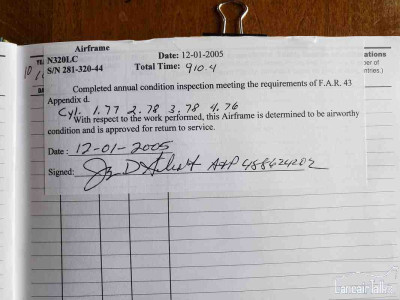 Airframe
N320LC Date: 12-01-2005
S/N 281-320-44 Total Time: 910.4
Completed annual condition inspection meeting the requirements of F.A.R. 43
Appendix d.
Cyl. 1.77 2.78 3.78 4.76
With respect to the work performed, this Airframe is determined to be airworthy
condition and is approved for return to service.
Date: 12-01-2005
Signed: A+P 488624202
ations
ber of
ntries.)
10
LancairTalk